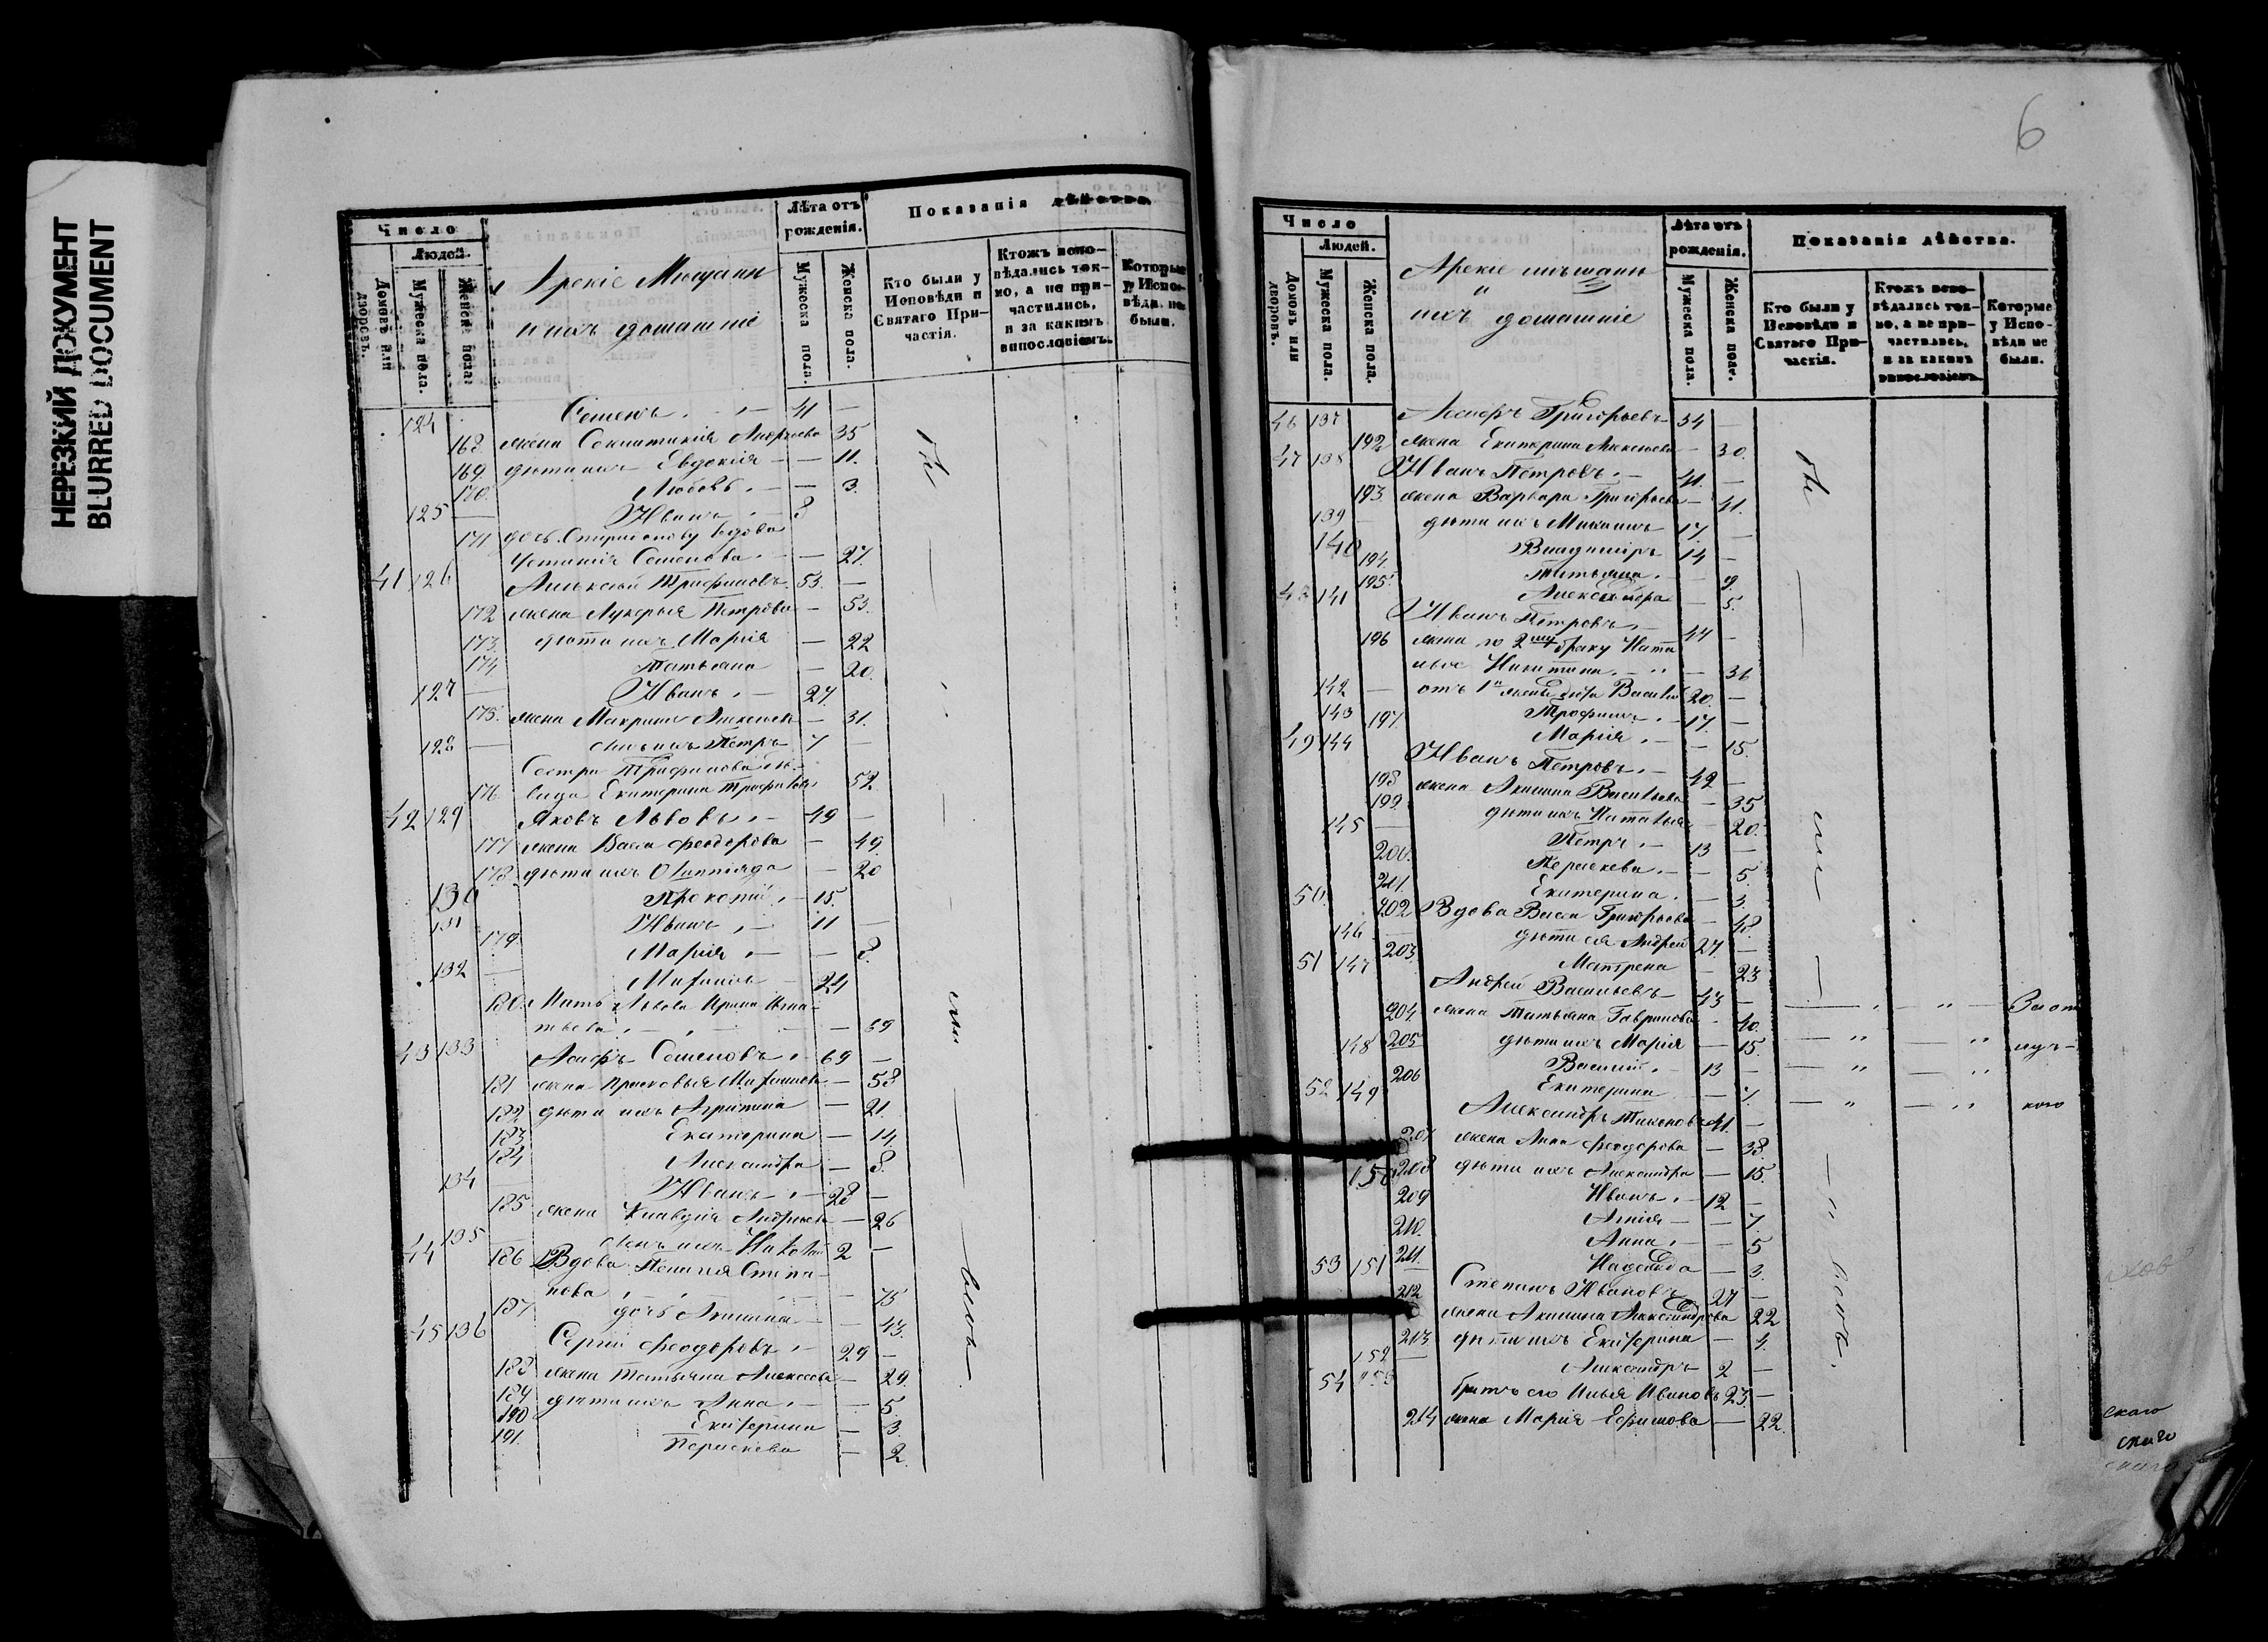 НЕРЕЗКИЙ ДОКУМЕНТ
BLURRED DOCUMENT
Число
Людей.
Домовъ или дворовъ.
Мужеска пола.
Женска пола.
Мещане
и ихъ домашніе
Лѣта отъ рожденія.
Мужеска пола.
Женска пола.
Показанія дѣйства.
Кто были у Исповѣди и Святаго Причастія.
Ктожъ исповѣдались токмо, а не причастились, и за какимъ винословіемъ.
Которые у Исповѣди не были.
124 Семенъ 41 —
168 жена Андреева 35
169 дѣти ихъ Евдокія — 11.
170 Любовь — 3.
125 — Иванъ 8
171 вдова
Семенова — 27.
41 126 Алексѣй Трифоновъ 53. —
172 жена Лукерья Петрова — 53.
173. дѣти ихъ Марія — 22
174 Татьяна — 20.
127 — Иванъ — 27.
175. жена — 31.
128 — сынъ ихъ Петръ 7 —
Сестра Трифонова дѣ-
176 вица Екатерина Трифонова 52
42 129 Яковъ Львовъ 49 —
177 жена Васса Феодорова — 49.
178 дѣти ихъ Олимпіада — 20
130 Прокопій — 15.
131 Иванъ — 11 —
179. Марія — 8.
132 — Михаилъ — 24
180. Мать Львова Ирина Игна-
тьева — 69
43 133 Семеновъ 69 —
181 жена Прасковья — 58
182 дѣти ихъ — 21.
183 Екатерина — 14.
184 Александра — 8.
134 — Иванъ — 28 —
185 жена Клавдія Андреева — 26
135 — сынъ ихъ Николай 2 —
44 186 Вдова Пелагея Степа-
нова — 75
187 дочь — 43.
45 136 Сергій Феодоровъ 29 —
188 жена Татьяна Алексѣева — 29.
189 дѣти ихъ Анна — 5
190 Екатерина — 3.
191. Параскева — 2.
6
Число
Людей.
Домовъ или дворовъ.
Мужеска пола.
Женска пола.
мѣщане
и
ихъ домашніе
Лѣта отъ рожденія.
Мужеска пола.
Женска пола.
Показанія дѣйства.
Кто были у Исповѣди и Святаго Причастія.
Ктожъ исповѣдались токмо, а не причастились, и за какимъ винословіемъ.
Которые у Исповѣди не были.
46 137 Григорьевъ 34 —
192 жена Екатерина — 30.
47 138 Иванъ Петровъ 41. —
193. жена Варвара Григорьева — 41.
139 — дѣти ихъ Михаилъ 17. —
140 Владиміръ 14 —
194. Татьяна — 9.
195. Александра — 5.
48 141 Иванъ Петровъ 44 —
196 жена по 2му браку Ната-
лья Никитина — 36
142 — отъ 1й жены дѣти Василій 20. —
143 Трофимъ 17. —
197. Марія — 15.
49 144 Иванъ Петровъ 42 —
198 жена Акилина Васильева — 35
199. дѣти ихъ Наталья — 20.
145 — Петръ 13 —
200. Параскева — 5.
201. Екатерина — 3.
50. 202 Вдова Васса Григорьева — 48.
146 — дѣти ея Андрей 27 —
203. Матрена — 23
51 147 Андрей Васильевъ 43 —
204. жена Татьяна Гаврилова — 40.
205 дѣти ихъ Марія — 15.
148 Василій 13 —
206 Екатерина — 7.
52 149 Александръ Тихоновъ 41. —
207 жена Анна Феодорова — 38.
208 дѣти ихъ Александра — 15.
150 Иванъ 12 —
209 — 7.
210. Анна — 5
211. Надежда — 3.
53 151 Степанъ Ивановъ 27 —
212 жена Акилина Александрова 22
213. дѣти ихъ Екатерина — 4.
152 — Александръ 2 —
54 153 братъ его Илья Ивановъ 23 —
214 жена Марія Ефимова — 22.
За от
луч-
кою
скаго
скаго
скаго